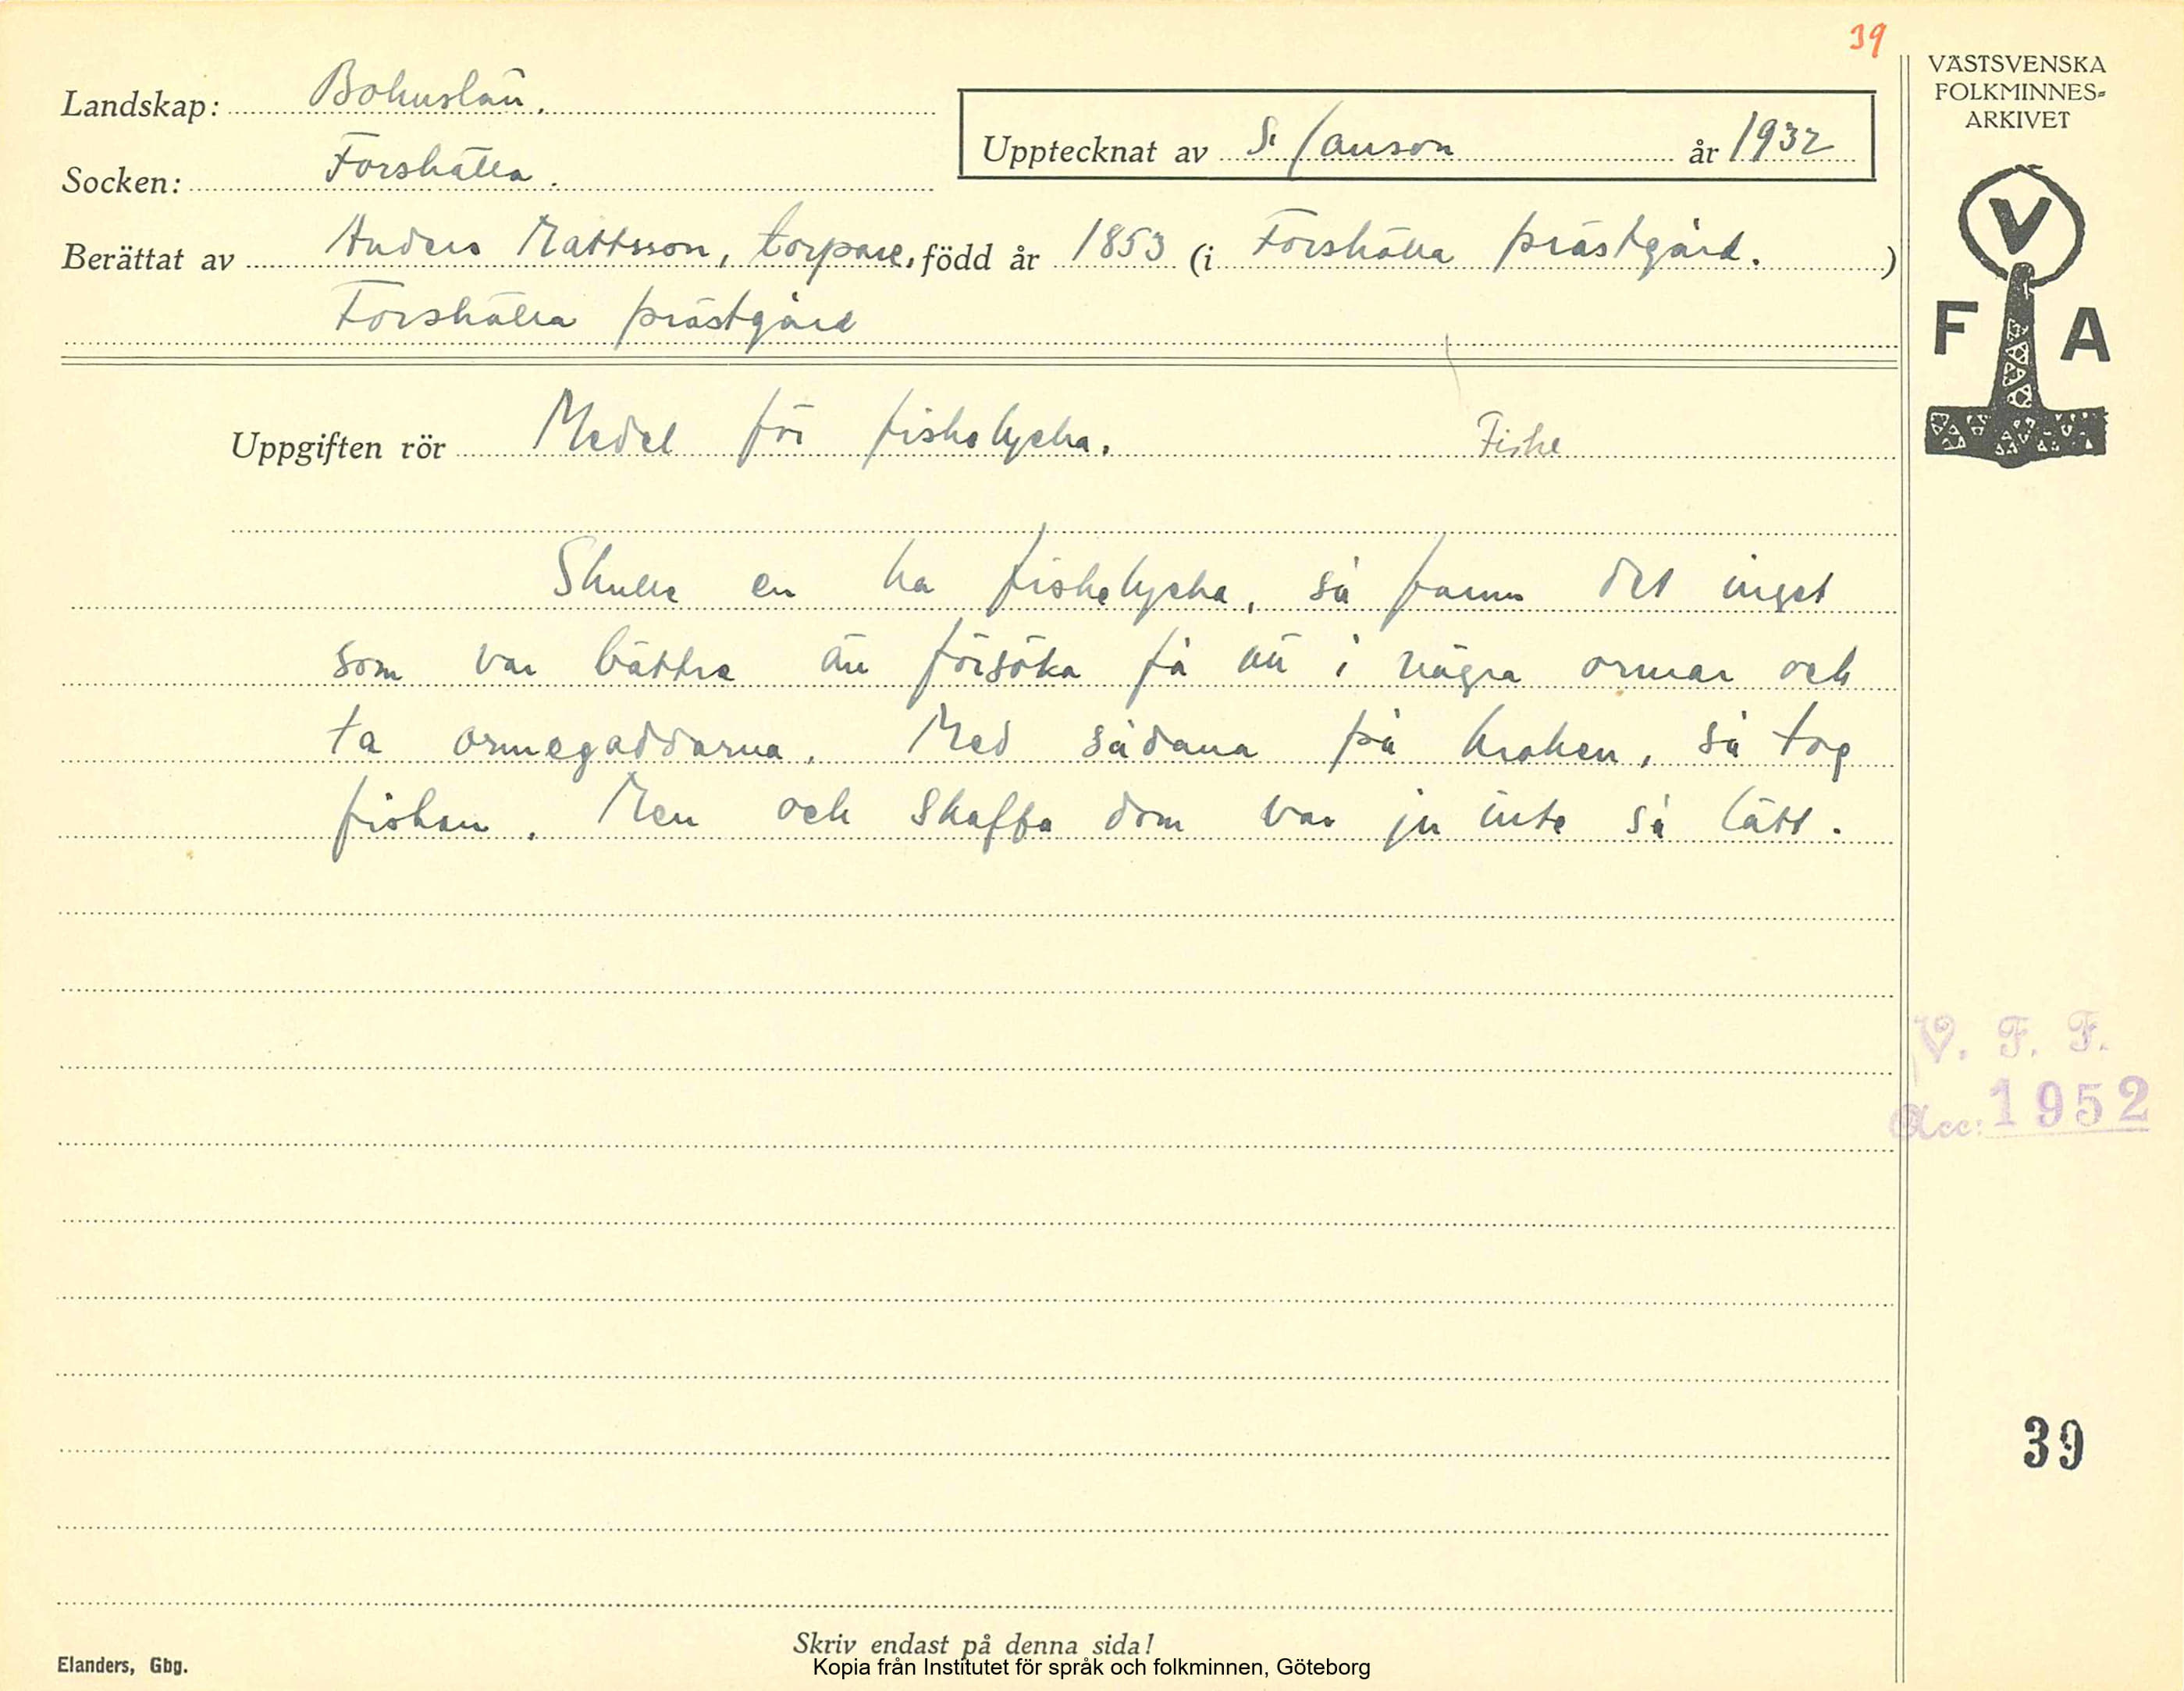 39
VÄSTSVENSKA
FOLKMINNES=
ARKIVET
Landskap: Bohuslän.
Upptecknat av S. Janson år 1932
Socken: Forshälla.
Berättat av Anders Mattsson, torpare, född år 1853 (i Forshälla prästgård.)
Forshälla prästgård
V
F A
Uppgiften rör Medel för fiskelycka. Fiske
Skulle en ha fiskelycka, så fanns det inget
som var bättre än försöka få ätt i några ormar och
ta ormegaddarna. Med sådana på kroken, så tog
fiskan. Men och skaffa dom var ju inte så lätt.
V. F. F.
Acc: 1952
39
Skriv endast på denna sida!
Elanders, Gbg.
Kopia från Institutet för språk och folkminnen, Göteborg